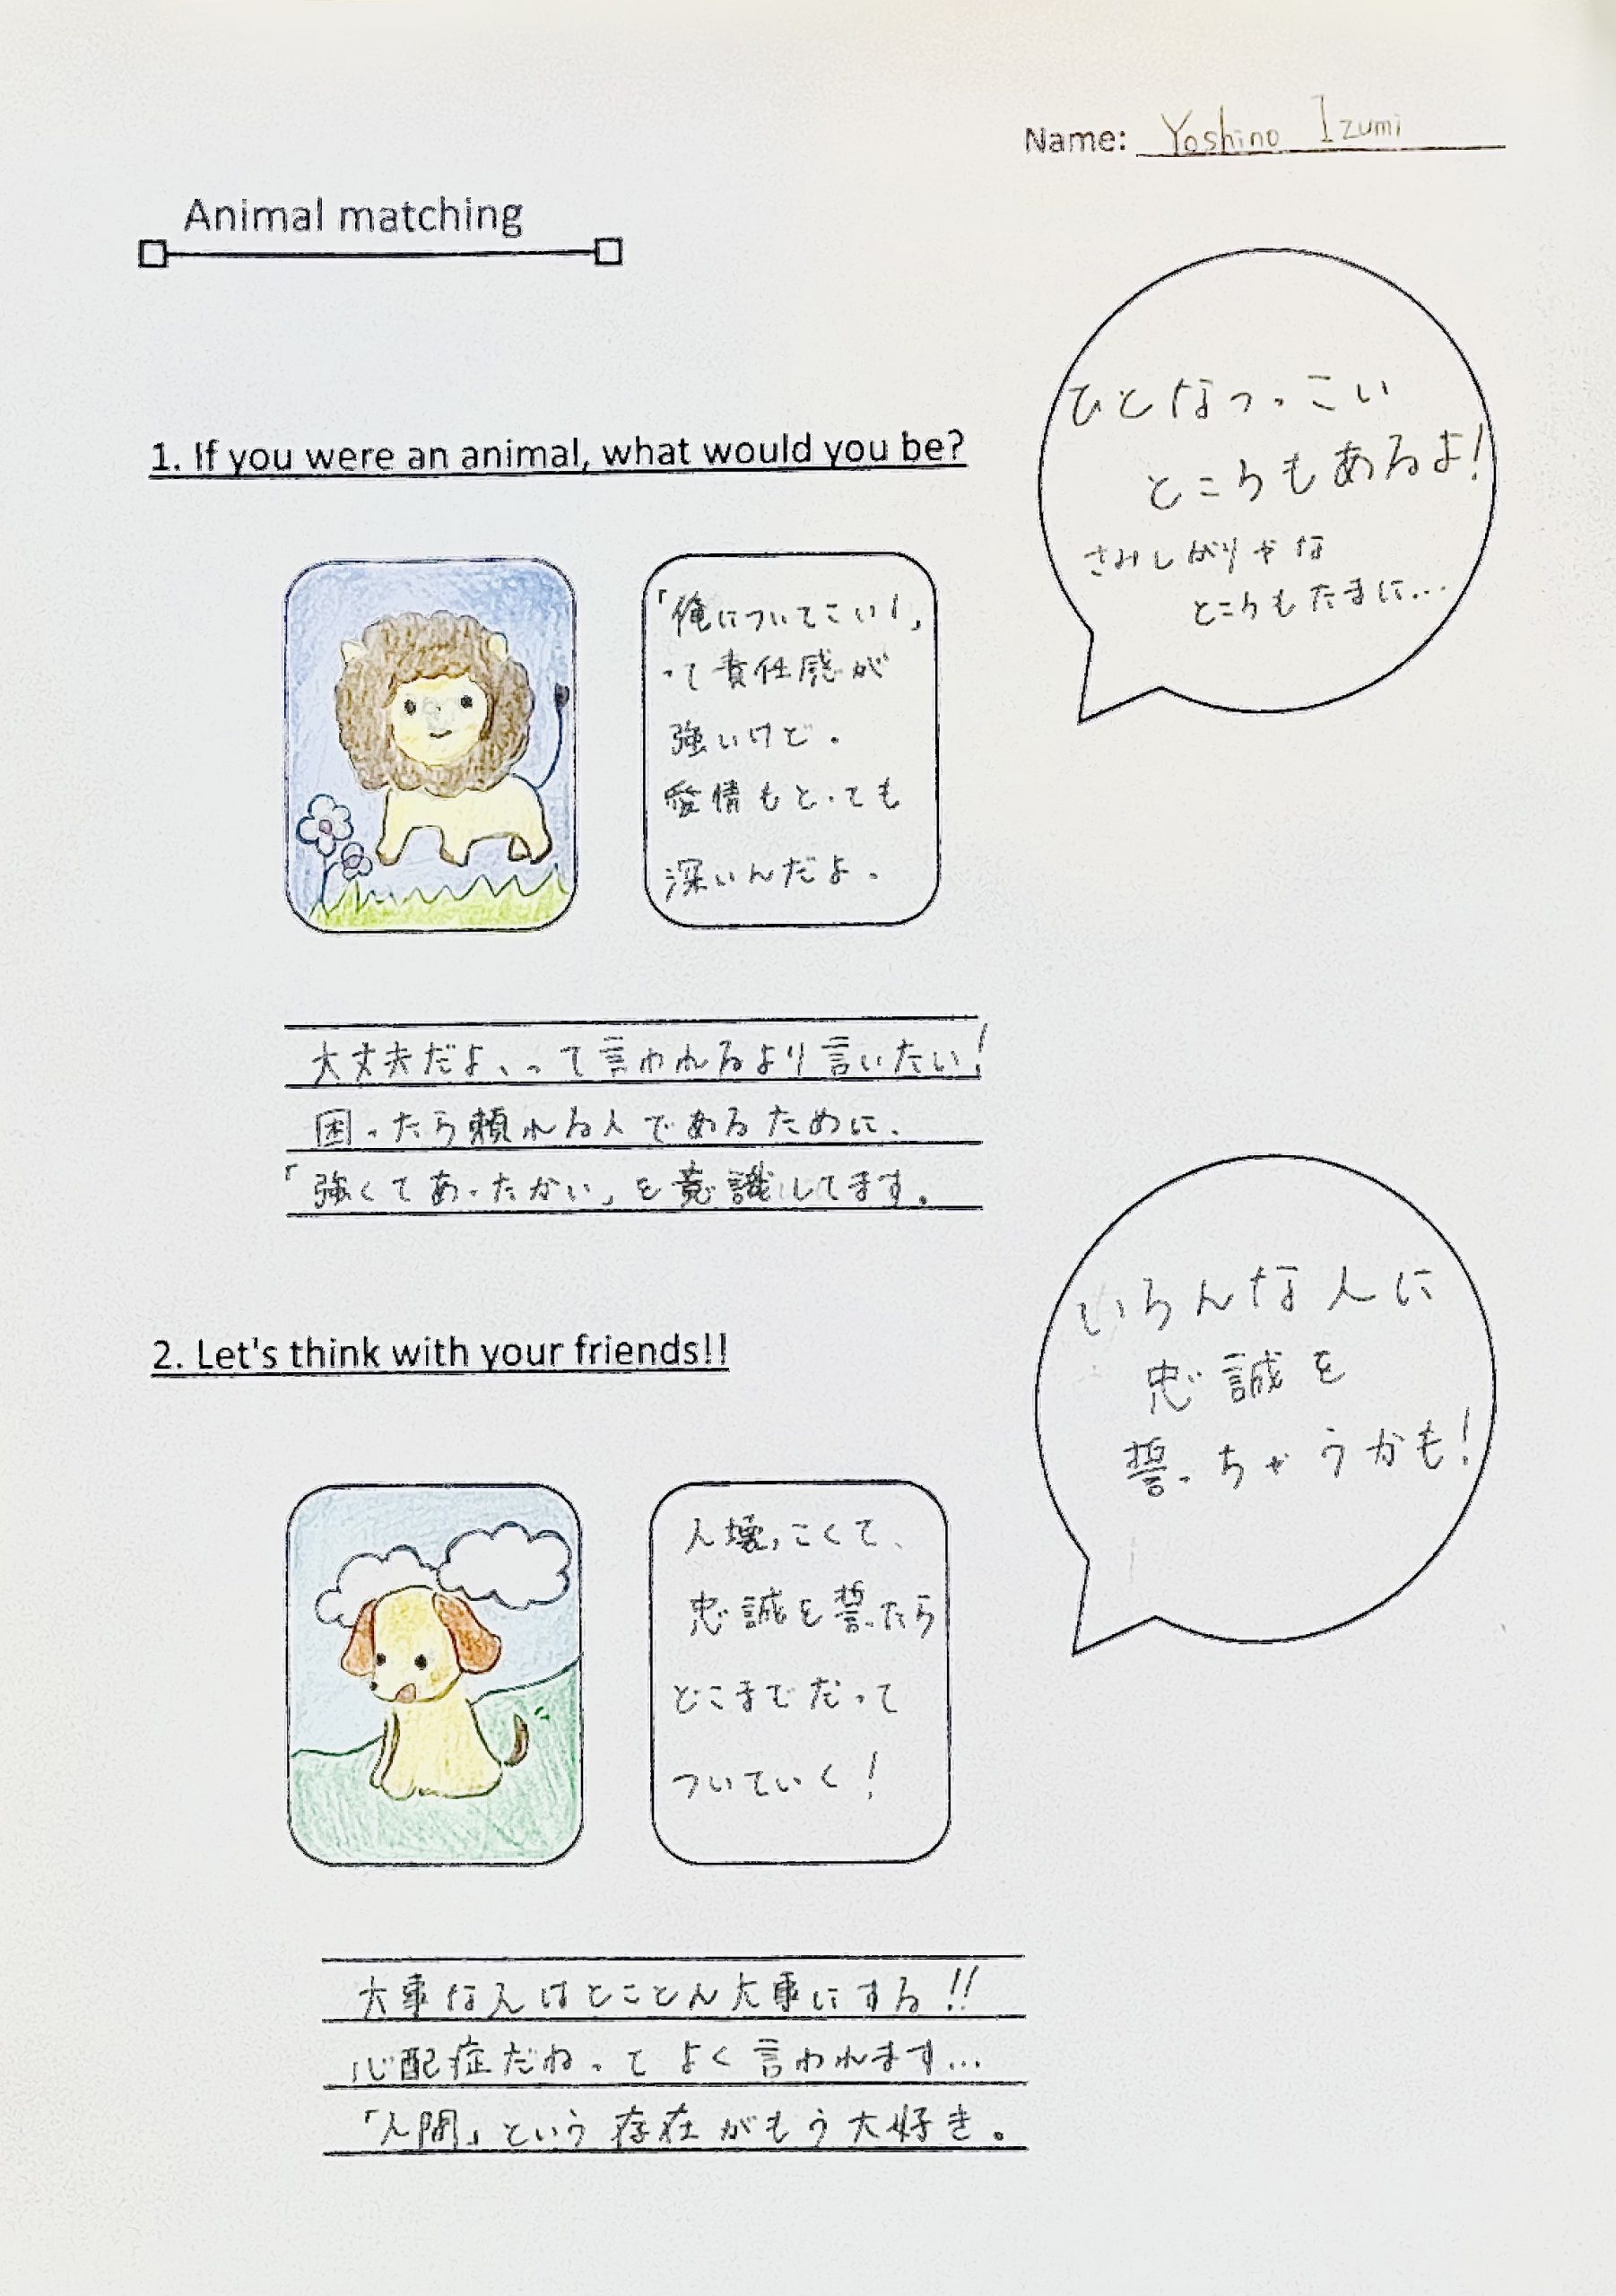 Name: Yoshino Izumi
Animal matching
1. If you were an animal, what would you be?
ひとなつっこい
ところもあるよ!
さみしがりやな
ところもたまに...
「俺についてこい!」
って責任感が
強いけど。
愛情もとっても
深いんだよ。
大丈夫だよ、って言われるより言いたい!
困ったら頼れる人であるために、
「強くてあったかい」を意識してます。
2. Let's think with your friends!!
いろんな人に
忠誠を
誓っちゃうかも!
人壊っこくて、
忠誠を誓ったら
どこまでだって
ついていく!
大事な人はとことん大事にする!!
心配症だねってよく言われます...
「人間」という存在がもう大好き。